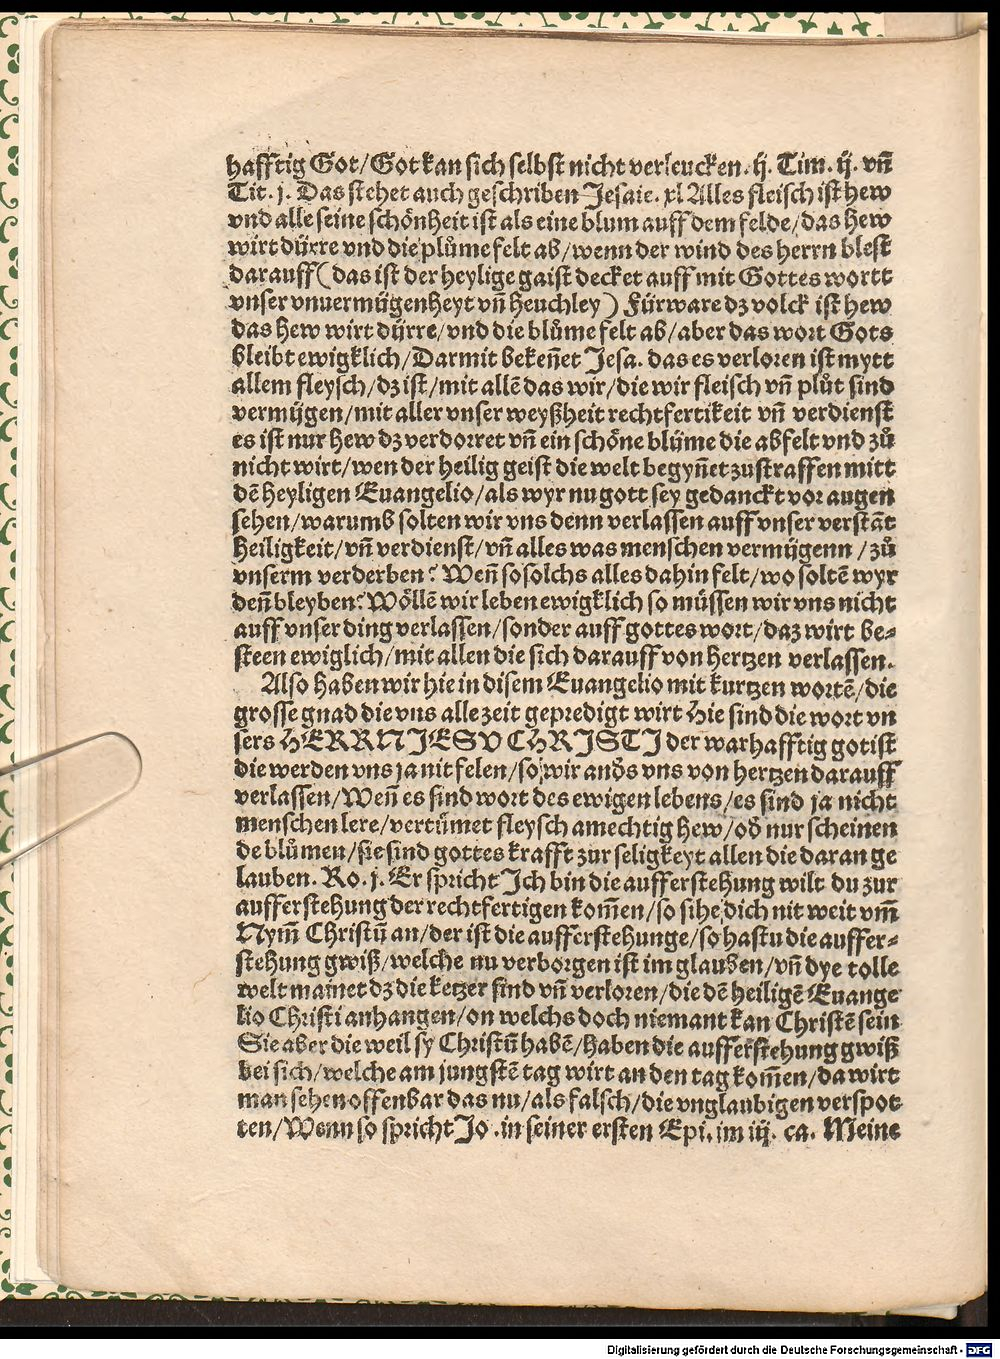 hafftig Got/Got kan sich selbst nicht verleucken. ij. Tim. ij. vñ
Tit. j. Das stehet auch geschriben Jesaie. xl Alles fleisch ist hew
vnd alle seine schönheit ist als eine blum auff dem felde/das hew
wirt dürre vnd die plůme felt ab/wenn der wind des herrn blest
darauff(das ist der heylige gaist decket auff mit Gottes wortt
vnser vnuermügenheyt vñ heuchley) Fürware dz volck ist hew
das hew wirt dürre/vnd die blůme felt ab/aber das wort Gots
bleibt ewigklich/Darmit bekeñet Jesa. das es verloren ist mytt
allem fleysch/dz ist/mit allē das wir/die wir fleisch vñ plůt sind
vermügen/mit aller vnser weyßheit rechtfertikeit vñ verdienst
es ist nur hew dz verdorret vñ ein schöne blůme die abfelt vnd zů
nicht wirt/wen der heilig geist die welt begyñet zustraffen mitt
dē heyligen Euangelio/als wyr nu gott sey gedanckt vor augen
sehen/warumb solten wir vns denn verlassen auff vnser verstāt
heiligkeit/vñ verdienst/vñ alles was menschen vermügenn/zů
vnserm verderben? Weñ so solchs alles dahin felt/wo soltē wyr
deñ bleyben? Wöllē wir leben ewigklich so müssen wir vns nicht
auff vnser ding verlassen/sonder auff gottes wort/daz wirt be⸗
steen ewiglich/mit allen die sich darauff von hertzen verlassen.
Also haben wir hie in disem Euangelio mit kurtzen wortē/die
grosse gnad die vns alle zeit gepredigt wirt Hie sind die wort vn
sers HERRN JESV CHRISTI der warhafftig got ist
die werden vns ja nit felen/so wir anďs vns von hertzen darauff
verlassen/Weñ es sind wort des ewigen lebens/es sind ja nicht
menschen lere/vertůmet fleysch amechtig hew/oď nur scheinen
de blůmen/sie sind gottes krafft zur seligkeyt allen die daran ge
lauben. Ro. j. Er spricht Ich bin die aufferstehung wilt du zur
aufferstehung der rechtfertigen kom̄en/so sihe dich nit weit vm̄
Nym̄ Christū an/der ist die aufferstehunge/so hastu die auffer⸗
stehung gwiß/welche nu verborgen ist im glauben/vñ dye tolle
welt mainet dz die ketzer sind vñ verloren/die dē heiligē Euange
lio Christi anhangen/on welchs doch niemant kan Christē sein
Sie aber die weil sy Christū habē/haben die aufferstehung gwiß
bei sich/welche am jungstē tag wirt an den tag kom̄en/da wirt
man sehen offenbar das nu/als falsch/die vnglaubigen verspot
ten/Wenn so spricht Jo. in seiner ersten Epi. im iij. ca. Meine
Digitalisierung gefördert durch die Deutsche Forschungsgemeinschaft - DFG